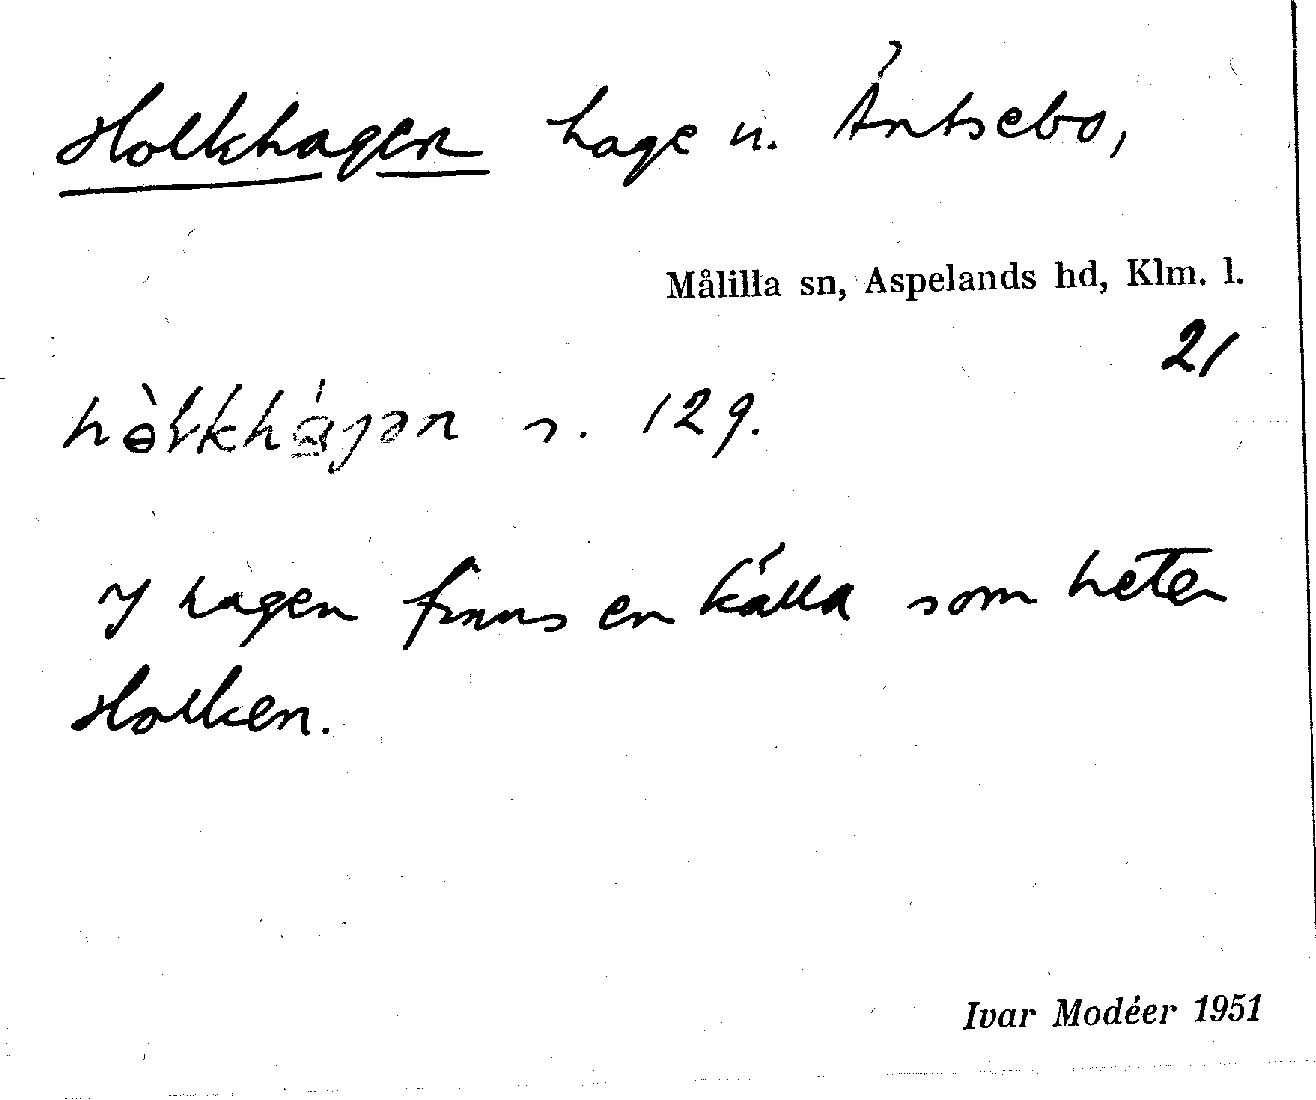 Holkhagen hage u. Äntsebo,
Målilla sn, Aspelands hd, Klm. l.
21
s. 129.
I hagen finns en källa som heter
Holken.
Ivar Modéer 1951